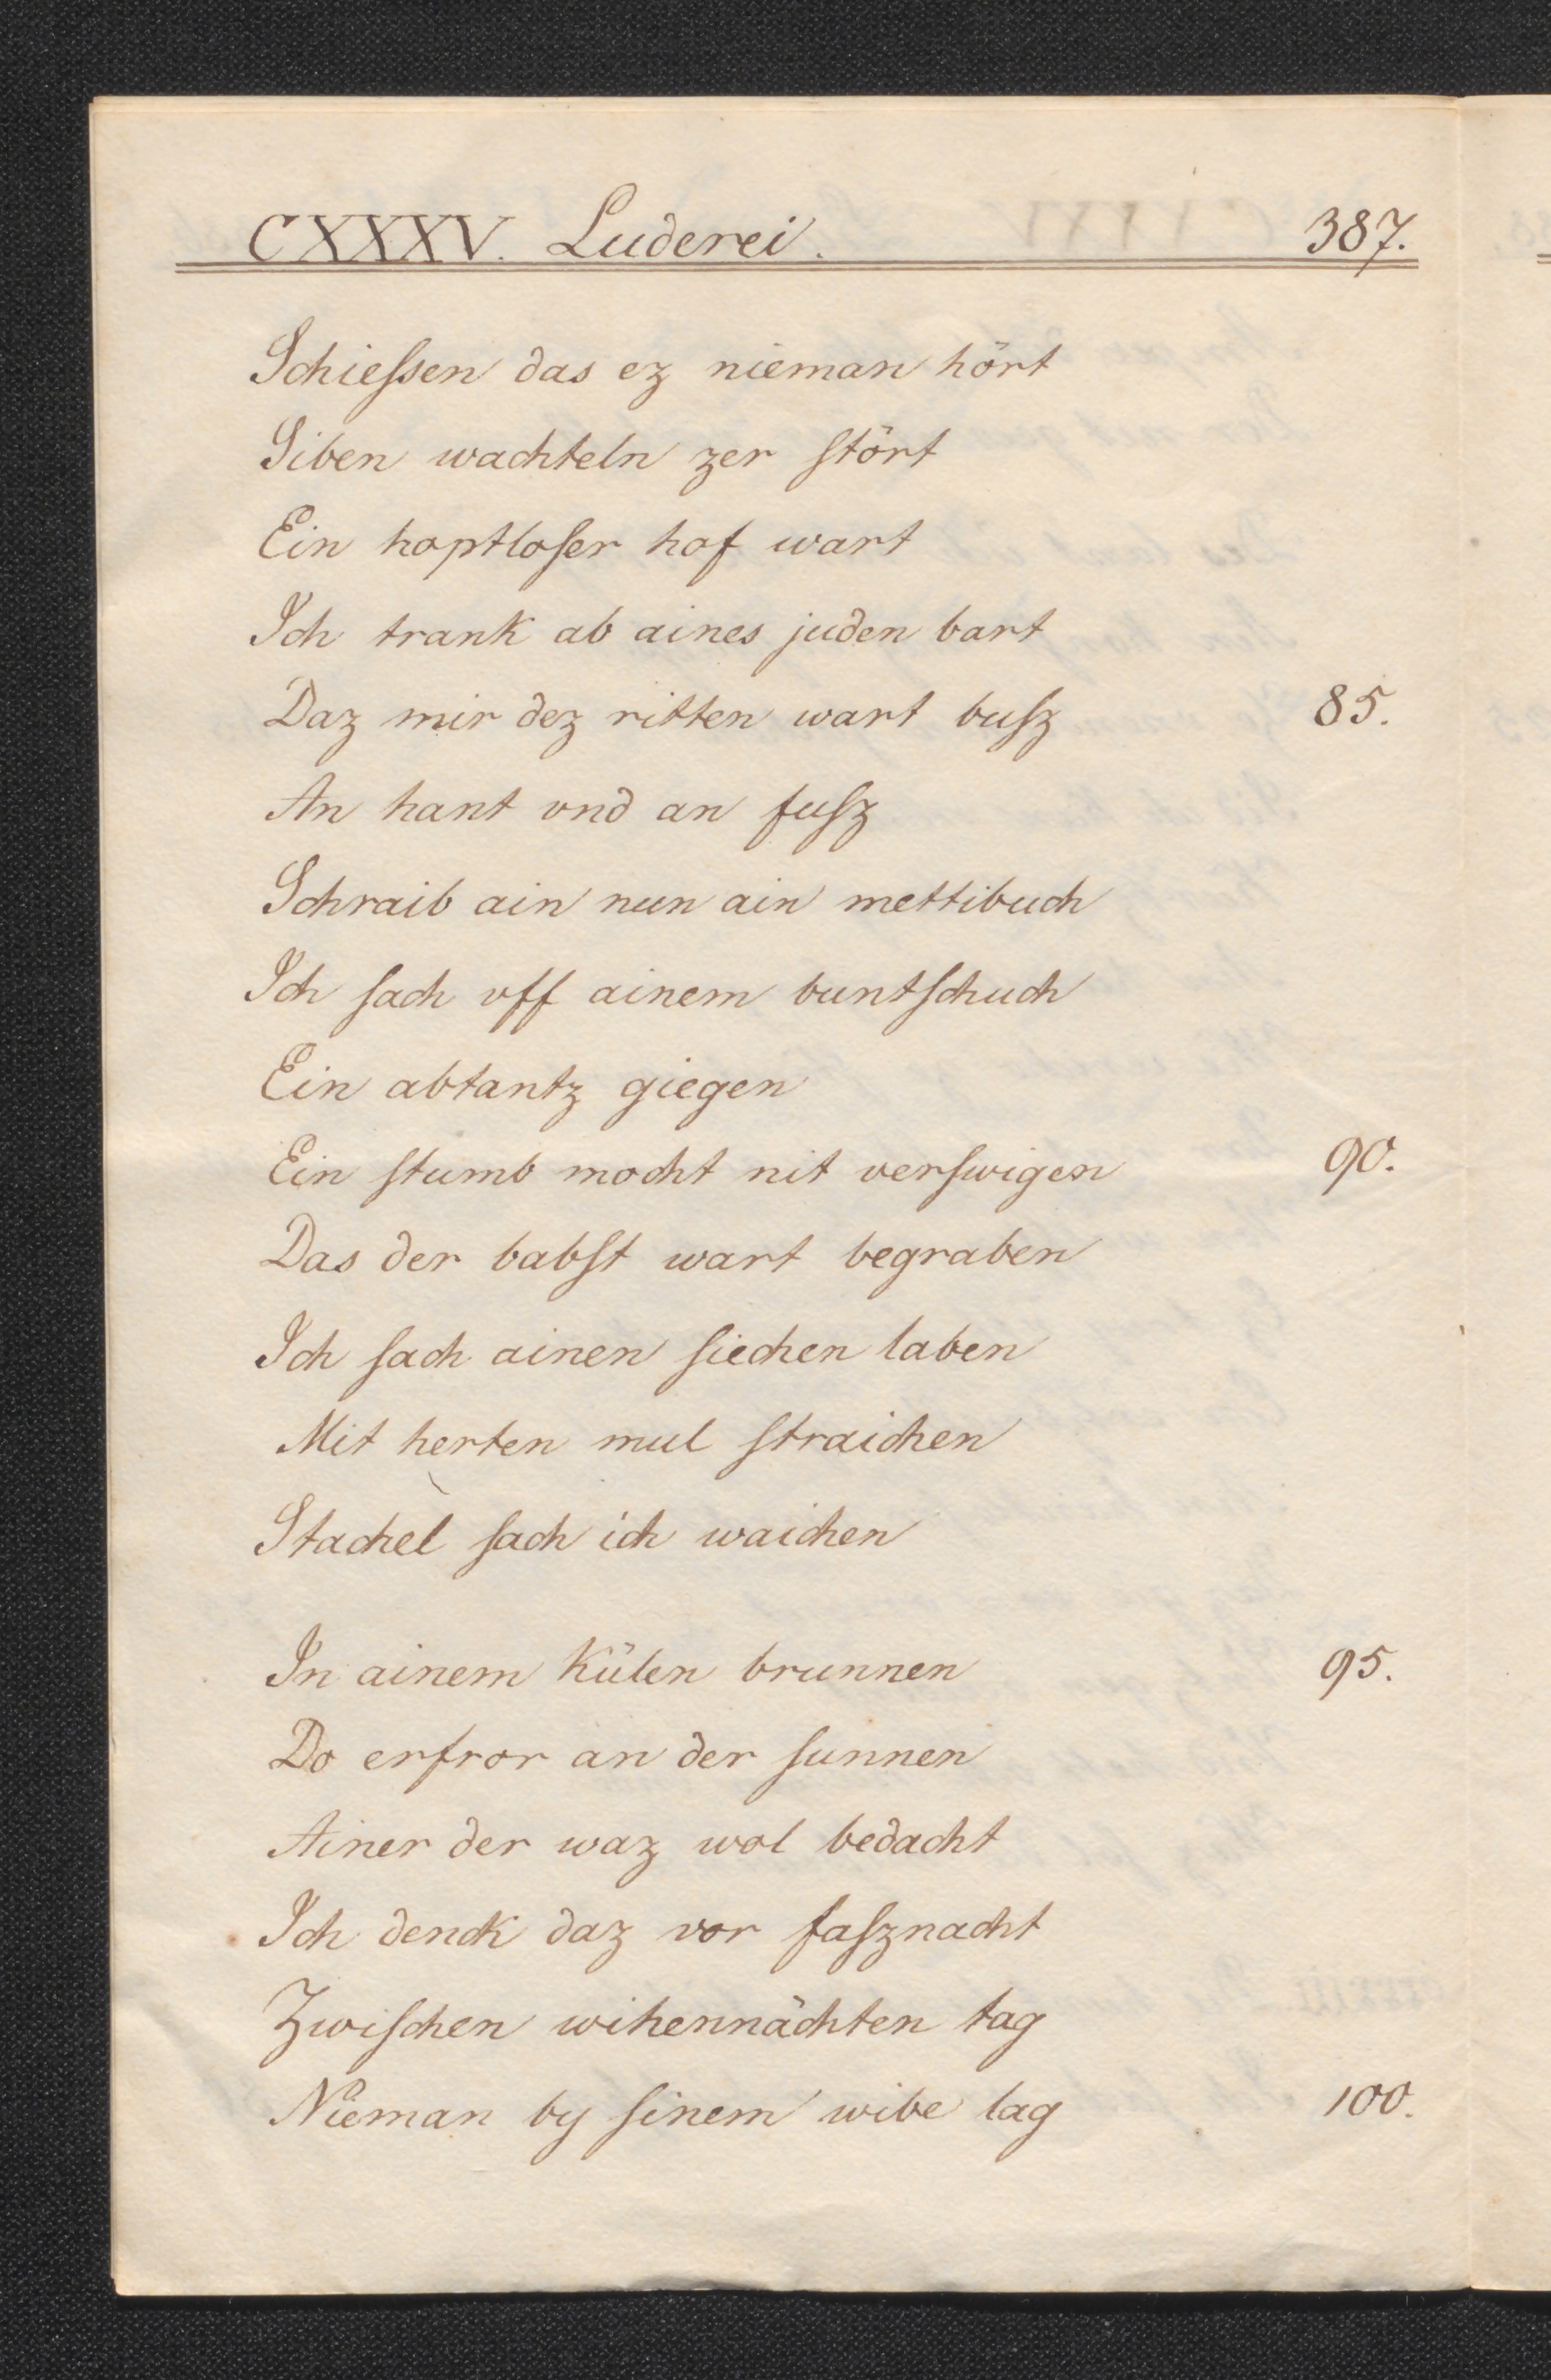 CXXXV. Luderei. 387.
Schieſsen das ez nieman hört
Siben wachteln zer ſtört
Ein hoptloſer hof wart
Ich trank ab aines juden bart
Daz mir dez ritten wart buſz 85.
An hant vnd an fuſz
Schraib ain nun ain mettibuch
Ich ſach vff ainem buntſchuch
Ein abtantz giegen
Ein ſtumb mocht nit verſwigen 90.
Das der babſt wart begraben
Ich ſach ainen ſiechen laben
Mit herten mul ſtraichen
Stachel ſach ich waichen
In ainem külen brunnen 95.
Do erfror an der ſunnen
Ainer der waz wol bedacht
Ich denck daz vor faſznacht
Zwiſchen wihennächten tag
Nieman by ſinem wibe lag 100.